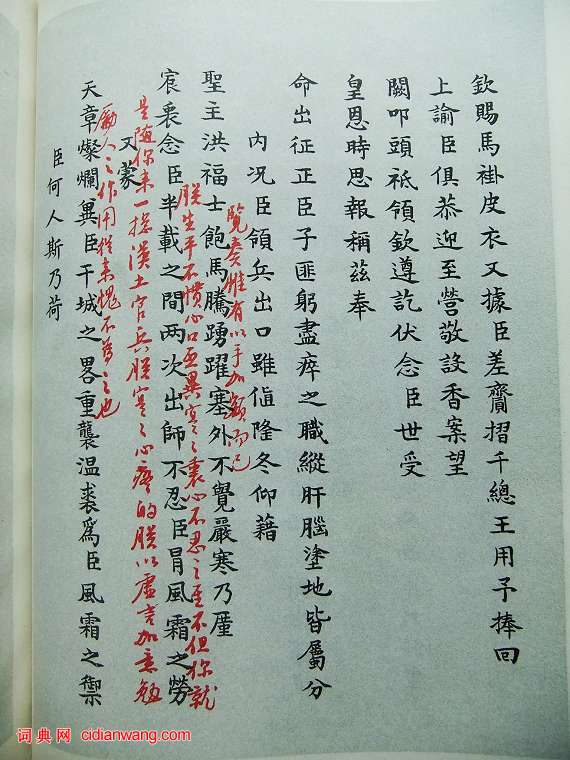 欽賜馬褂皮衣又據臣差賫摺千總王用予捧回
上諭臣俱恭迎至營敬設香案望
闕叩頭祗領欽遵訖伏念臣世受
皇恩時思報稱茲奉
命出征正臣子匪躬盡瘁之職縱肝腦塗地皆屬分
內况臣領兵出口雖值隆冬仰藉
覽奏惟有以手加額而已
聖主洪福士飽馬騰踴躍塞外不覺嚴寒乃廑
朕生平不慣心口相異寔寔裏心不忍之至不但你就
宸衷念臣半載之間两次出師不忍臣冒風霜之勞
是隨你来一撥漢土官兵朕寔寔心疼的朕以虛言加意勉
又蒙
勵人之作用從来愧不為之也
天章燦爛兾臣干城之畧重襲温裘為臣風霜之禦
臣何人斯乃荷
词典网 cidianwang.com